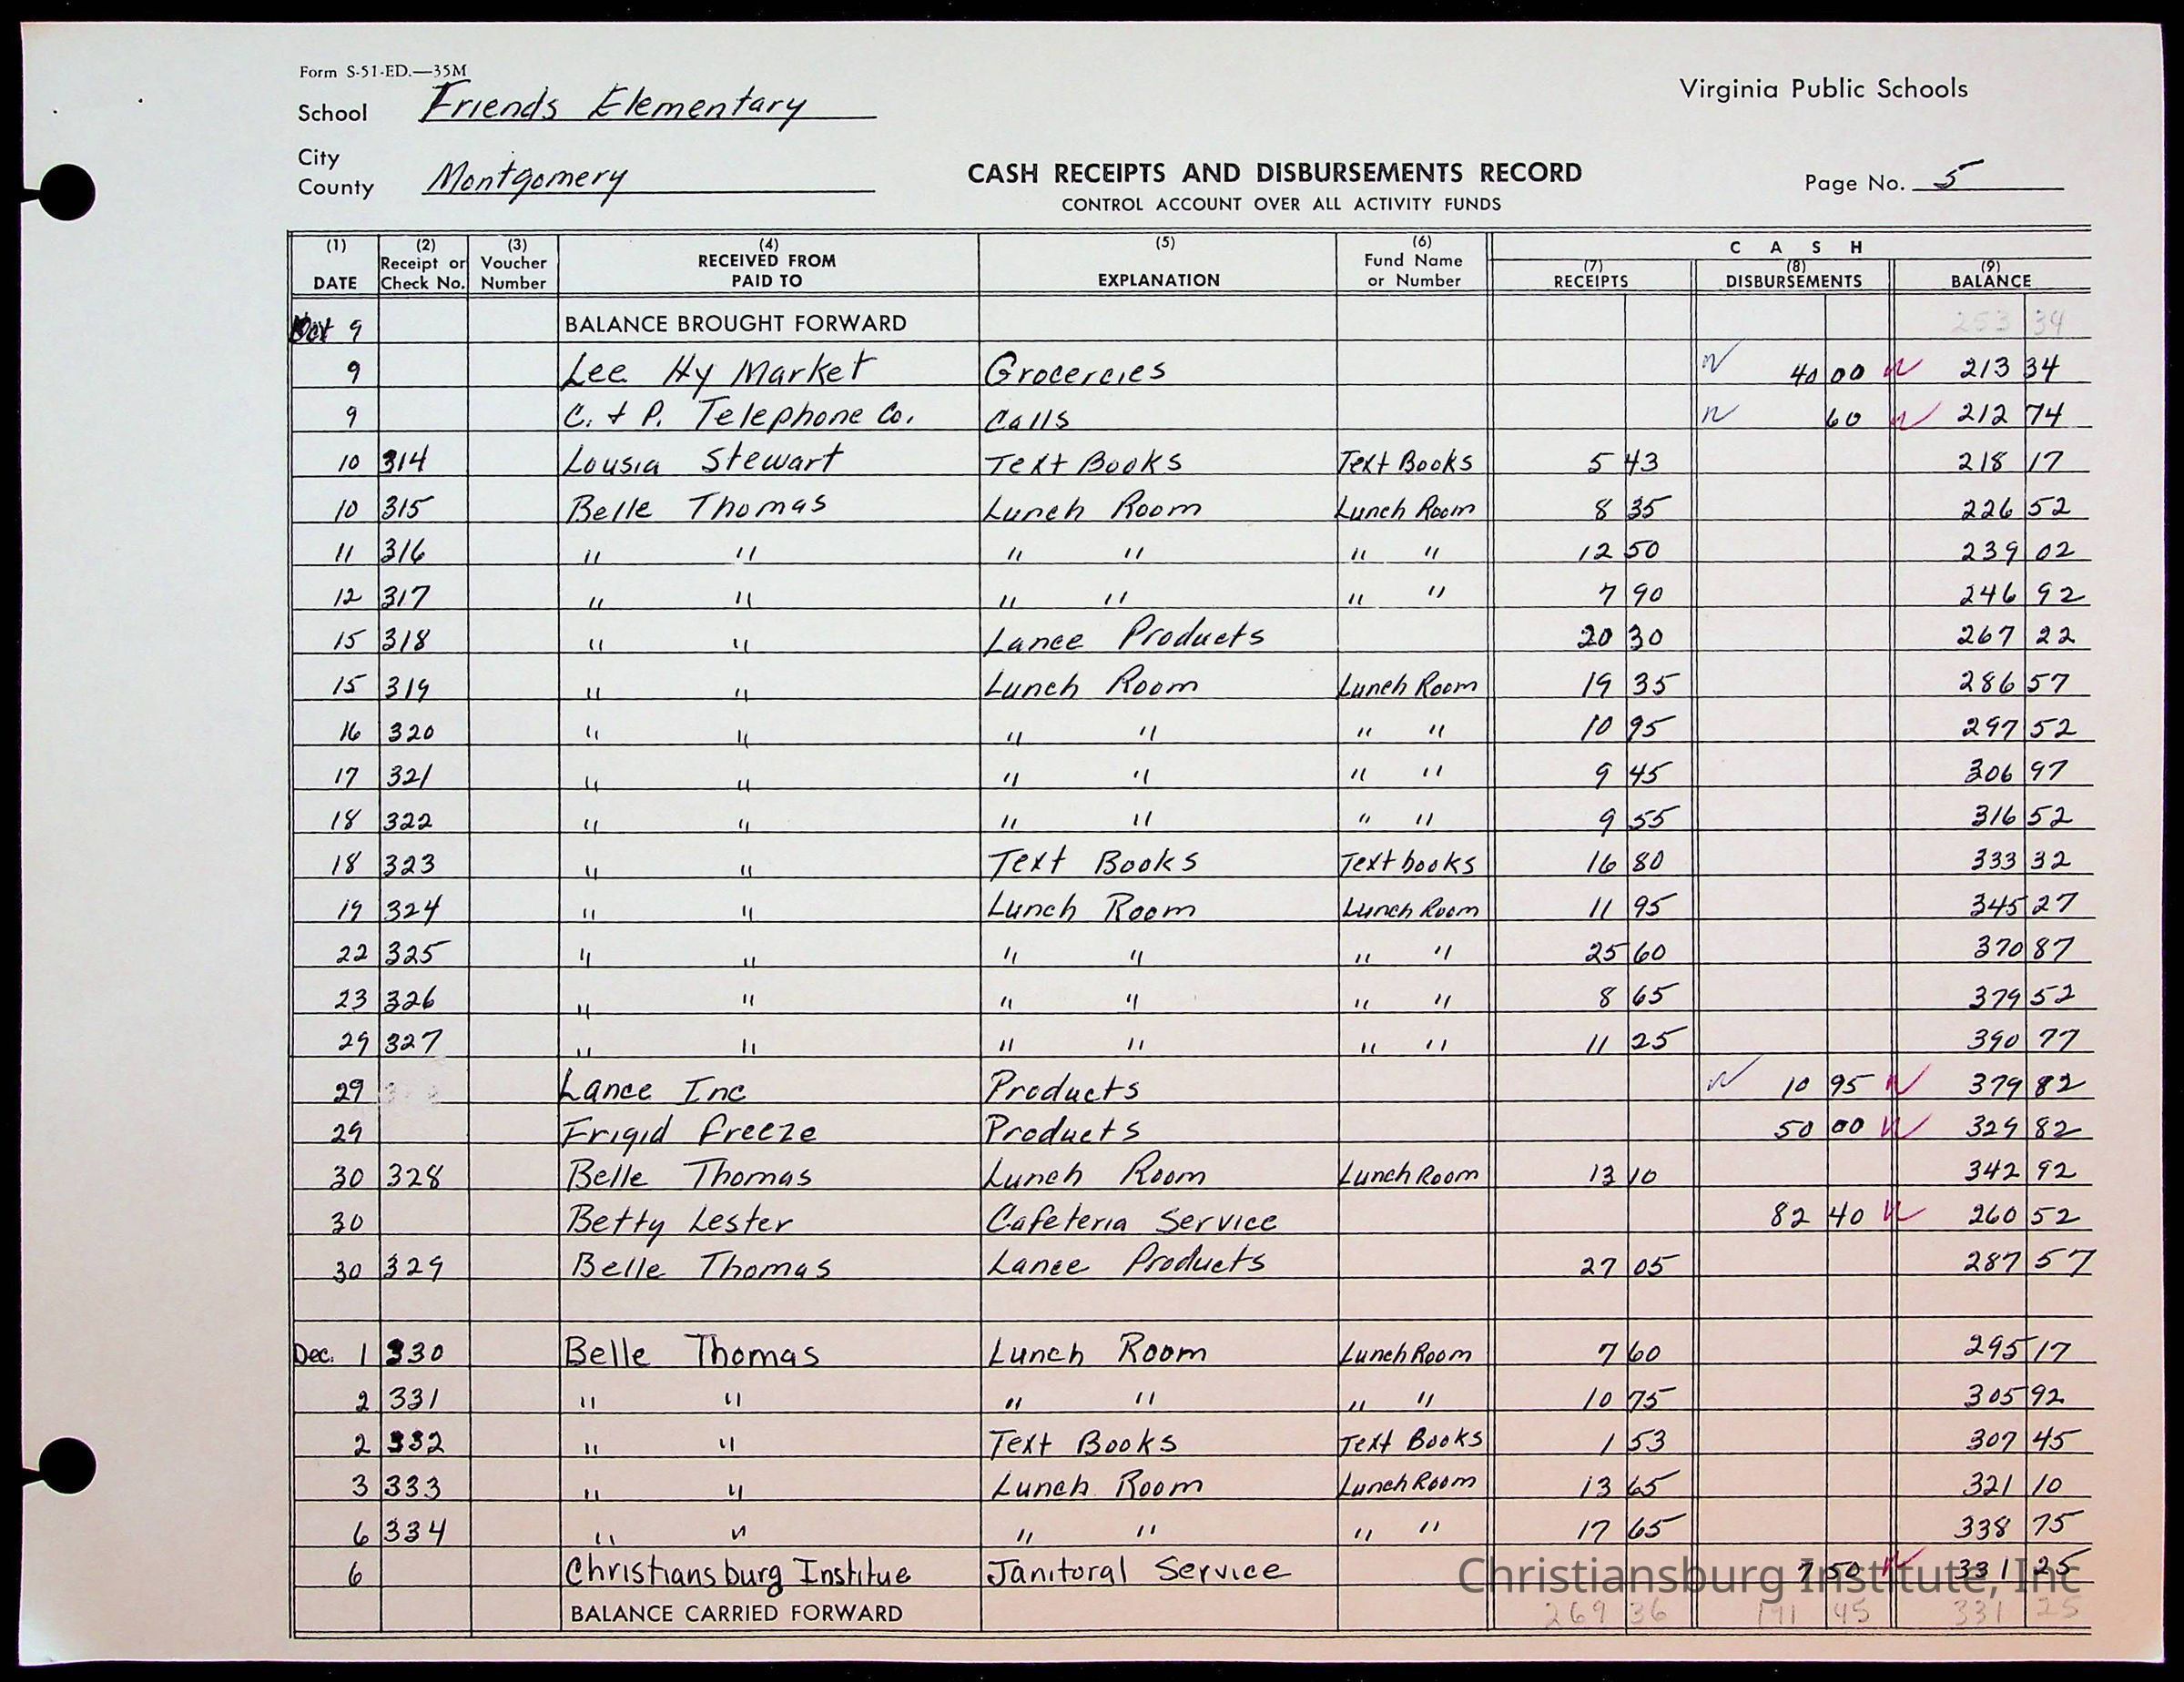 Form S-51-ED.—35M
School Friends Elementary
Virginia Public Schools
City
County Montgomery
CASH RECEIPTS AND DISBURSEMENTS RECORD
Page No. 5
CONTROL ACCOUNT OVER ALL ACTIVITY FUNDS
(1) DATE (2) Receipt or Check No. (3) Voucher Number (4) RECEIVED FROM PAID TO (5) EXPLANATION (6) Fund Name or Number CASH (7) RECEIPTS (8) DISBURSEMENTS (9) BALANCE
9 BALANCE BROUGHT FORWARD 253 34
9 Lee Hy Market Grocercies 40 00 213 34
9 C. & P. Telephone Co. Calls 60 212 74
10 314 Lousia Stewart Text Books Text Books 5 43 218 17
10 315 Belle Thomas Lunch Room Lunch Room 8 35 226 52
11 316 " " " " " " 12 50 239 02
12 317 " " " " " " 7 90 246 92
15 318 " " Lance Products 20 30 267 22
15 319 " " Lunch Room Lunch Room 19 35 286 57
16 320 " " " " " " 10 95 297 52
17 321 " " " " " " 9 45 306 97
18 322 " " " " " " 9 55 316 52
18 323 " " Text Books Textbooks 16 80 333 32
19 324 " " Lunch Room Lunch Room 11 95 345 27
22 325 " " " " " " 25 60 370 87
23 326 " " " " " " 8 65 379 52
29 327 " " " " " " 11 25 390 77
29 Lance Inc Products 10 95 379 82
29 Frigid freeze Products 50 00 329 82
30 328 Belle Thomas Lunch Room Lunch Room 13 10 342 92
30 Betty Lester Cafeteria Service 82 40 260 52
30 329 Belle Thomas Lance Products 27 05 287 57
Dec. 1 330 Belle Thomas Lunch Room Lunch Room 7 60 295 17
2 331 " " " " " " 10 75 305 92
2 332 " " Text Books Text Books 1 53 307 45
3 333 " " Lunch Room Lunch Room 13 65 321 10
6 334 " " " " " " 17 65 338 75
6 Christiansburg Institue Janitoral Service 7 50 331 25
Christiansburg Institute, Inc
BALANCE CARRIED FORWARD 269 36 191 45 331 25